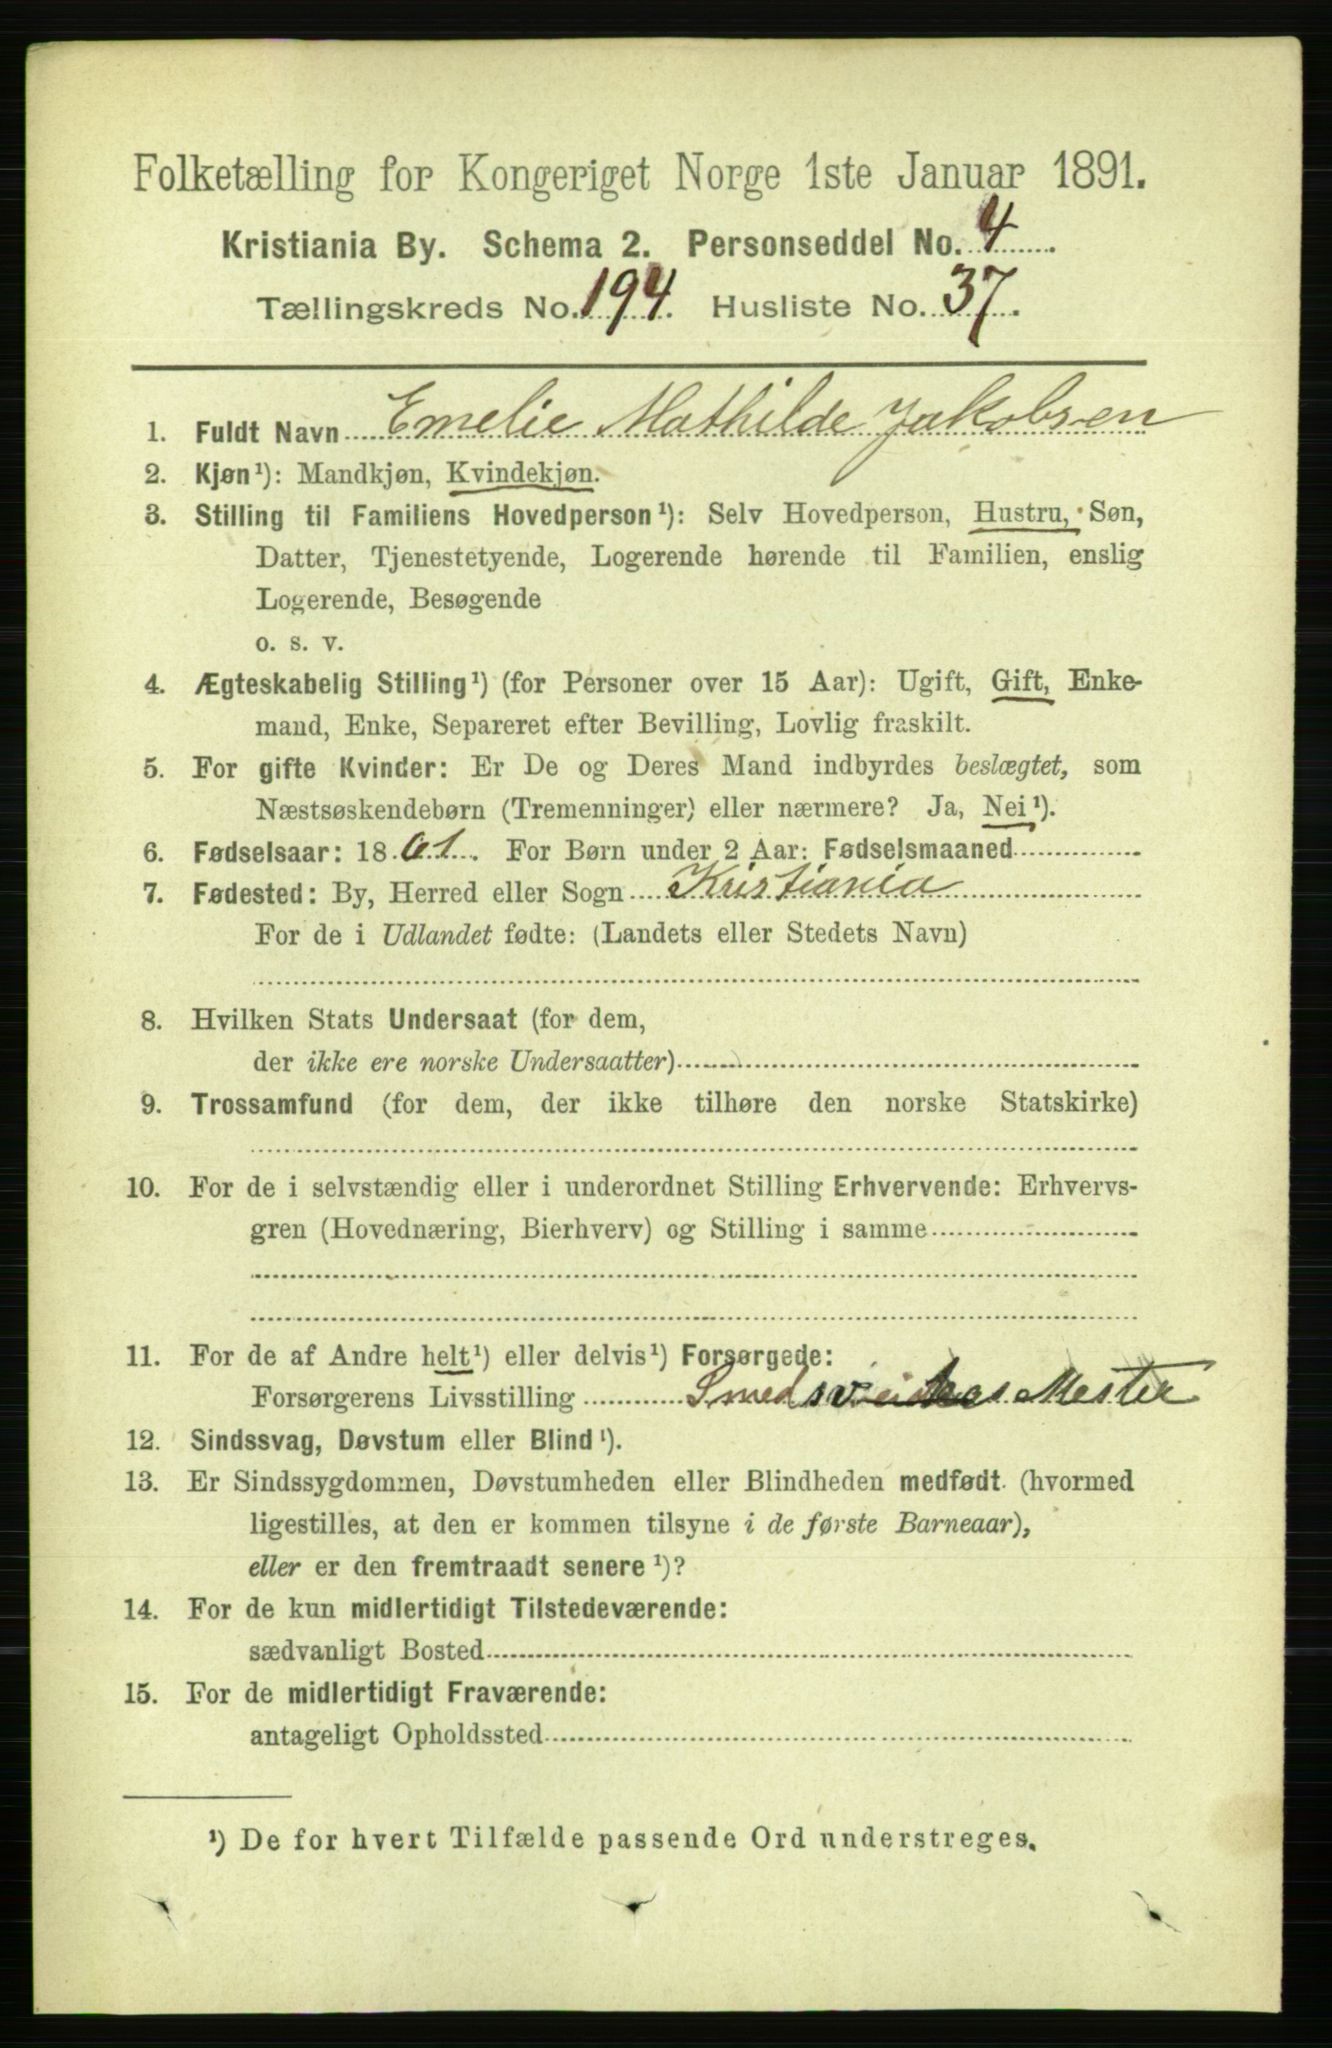 Folketælling for Kongeriget Norge 1ste Januar 1891.
Kristiania By. Schema 2. Personseddel No. 4
Tællingskreds No. 194. Husliste No. 37.
1. Fuldt Navn Emelie Mathilde Jakobsen
2. Kjøn¹): Mandkjøn, Kvindekjøn.
3. Stilling til Familiens Hovedperson¹): Selv Hovedperson, Hustru, Søn,
Datter, Tjenestetyende, Logerende hørende til Familien, enslig
Logerende, Besøgende
o. s. v.
4. Ægteskabelig Stilling¹) (for Personer over 15 Aar): Ugift, Gift, Enke-
mand, Enke, Separeret efter Bevilling, Lovlig fraskilt.
5. For gifte Kvinder: Er De og Deres Mand indbyrdes beslægtet, som
Næstsøskendebørn (Tremenninger) eller nærmere? Ja, Nei¹).
6. Fødselsaar: 1861. For Børn under 2 Aar: Fødselsmaaned
7. Fødested: By, Herred eller Sogn Kristiania
For de i Udlandet fødte: (Landets eller Stedets Navn)
8. Hvilken Stats Undersaat (for dem,
der ikke ere norske Undersaatter)
9. Trossamfund (for dem, der ikke tilhøre den norske Statskirke)
10. For de i selvstændig eller i underordnet Stilling Erhvervende: Erhvervs-
gren (Hovednæring, Bierhverv) og Stilling i samme
11. For de af Andre helt¹) eller delvis¹) Forsørgede:
Forsørgerens Livsstilling Smedsvend hos Mester
12. Sindssvag, Døvstum eller Blind¹).
13. Er Sindssygdommen, Døvstumheden eller Blindheden medfødt (hvormed
ligestilles, at den er kommen tilsyne i de første Barneaar),
eller er den fremtraadt senere¹)?
14. For de kun midlertidigt Tilstedeværende:
sædvanligt Bosted
15. For de midlertidigt Fraværende:
antageligt Opholdssted
¹) De for hvert Tilfælde passende Ord understreges.